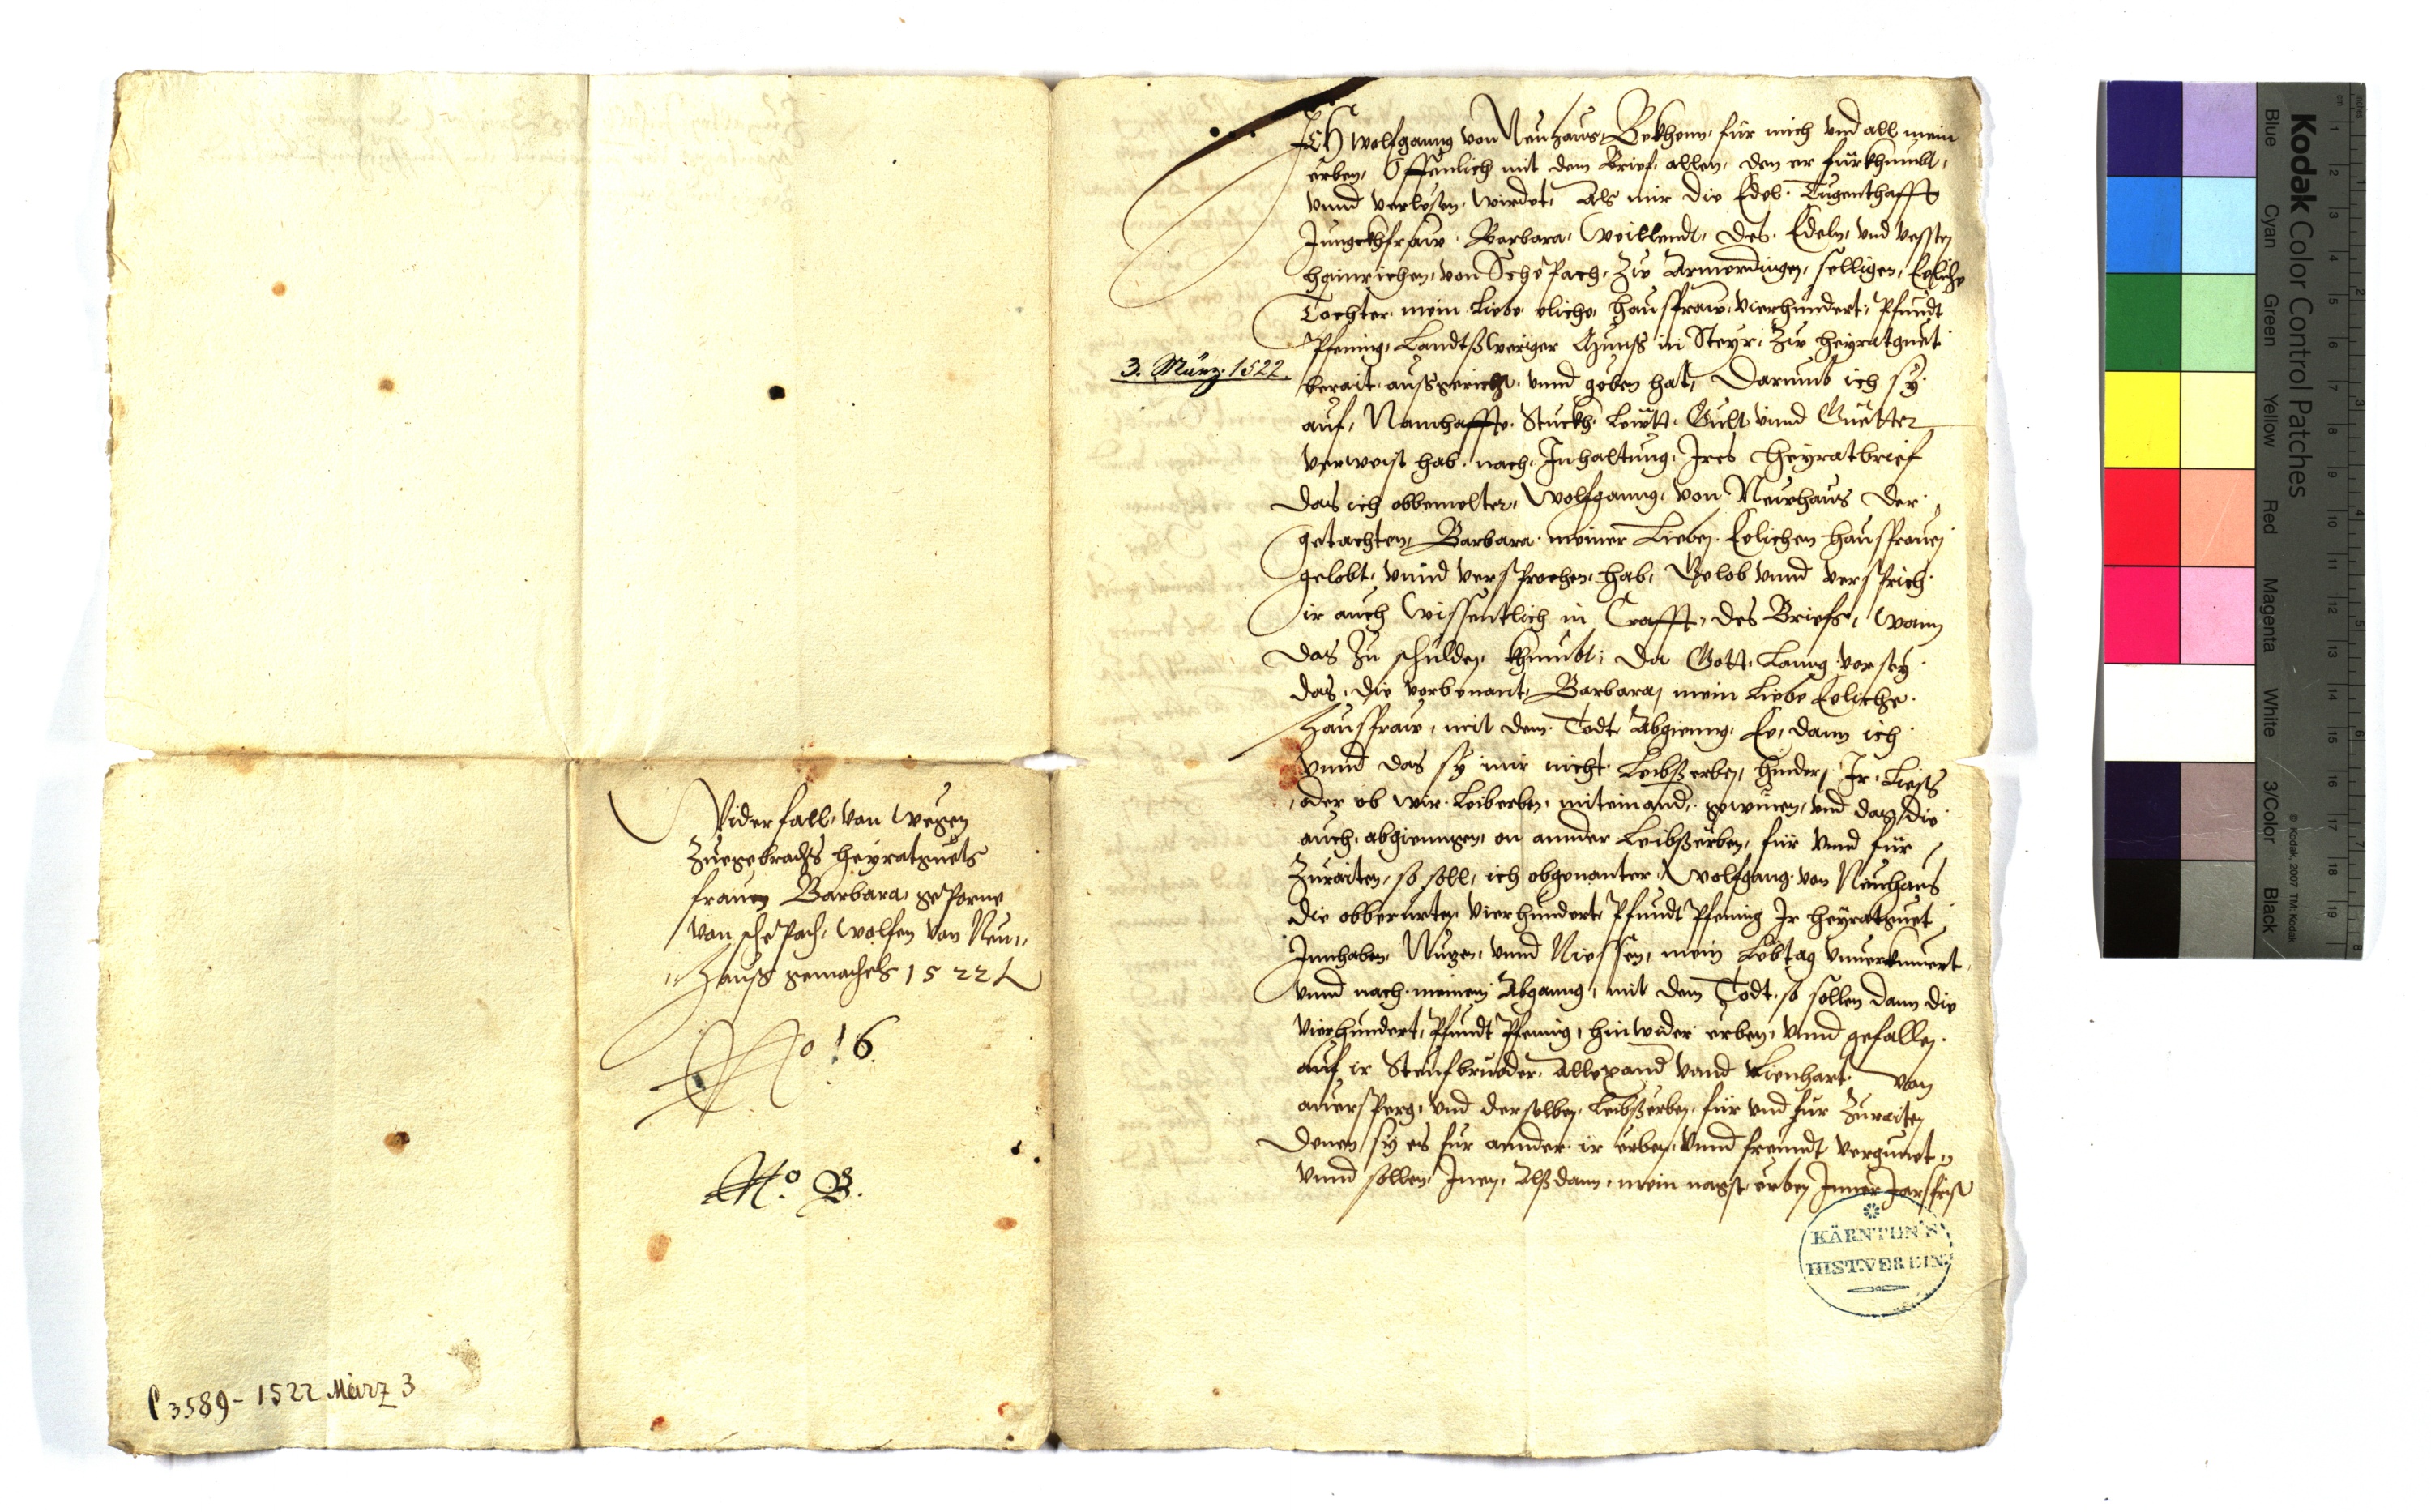 Widerfall von wegen
Zuegebrachts heyratguets
frauen Barbara geporne
von schepach, wolfen von Neu„
„hauß gemachels 1522
No 16.
No. B.
C 3589 - 1522 März 3
3. März 1522.
ICH wolfganng von Neuhaus, Bekhenn für mich vnd all mein
erben, Offenlich mit dem Brief, allen, den er fürkhumbt,
vnnd verlesen, wirdet, Als mir die Edel Tugenthafft
Junckhfraw Barbara, Weillendt, des Edeln, vnd vessten
hainrichen, von Schepach, zw Armerdingen, selligen, Eeliche
Tochter mein liebe eliche haussfraw, vierhundert, Pfundt
Pfening, Landtßweriger Munß in Steyr, zw heyratguet
berait, aussgericht vnnd geben hat, Darumb ich sy
auf, Namhaffte Stuckh Lewtt Gult vnnd Guetter
verweist hab, nach Innhaltung, Ires heyratbrief
das ich obbemelter, Wolfganng, von Neuhaus der
gedachten, Barbara meiner Lieben Eelichen hausfrauen
gelobt, vnnd versprochen hab, Gelob vnnd versprich
ir auch Wissentlich in Crafft, des Briefs, Wann
das zu schulden khumbt, da Gott, lanng vor sey
das, die vorbenant, Barbara, mein liebe Eeliche
haussfraw, mit dem Todt, Abgienng, Ee, dann ich
vnnd das sy mir nicht Leibßerben, hinder Ir, Liess
oder ob wir Leiberben, miteinand, gewunen, vnd das die
auch, abgienngen, on annder Leibßerben, für vnnd für
Zuraiten, so soll, ich obgenanter, Wolfgang von Neuhaus
die obberurten Vierhundert, Pfundt Pfening Ir heyratguet
Innhaben, Nutzen, vnnd Niessen, mein Lebtag vnuerkumert
vnnd nach meinem Abganng, mit dem Todt, so sollen dann die
Vierhundert, Pfundt Pfening, hinwider erben, vnnd gefallen
auf ir Steufbrueder, Allexand vnnd Lienhart von
auersperg, vnd derselben, Leibßerben, für vnd fur Zuraiten
denen sy es fur annder ir erben, vnnd freundt vergunnt,
vnnd sollen Inen, Alßdann, mein nagst erben Inner Jarsfrist
KÄRNTEN'S
HIST.VEREIN
Kodak Color Control Patches
Blue Cyan Green Yellow Red Magenta White 3/Color Black
© Kodak, 2007 TM: Kodak